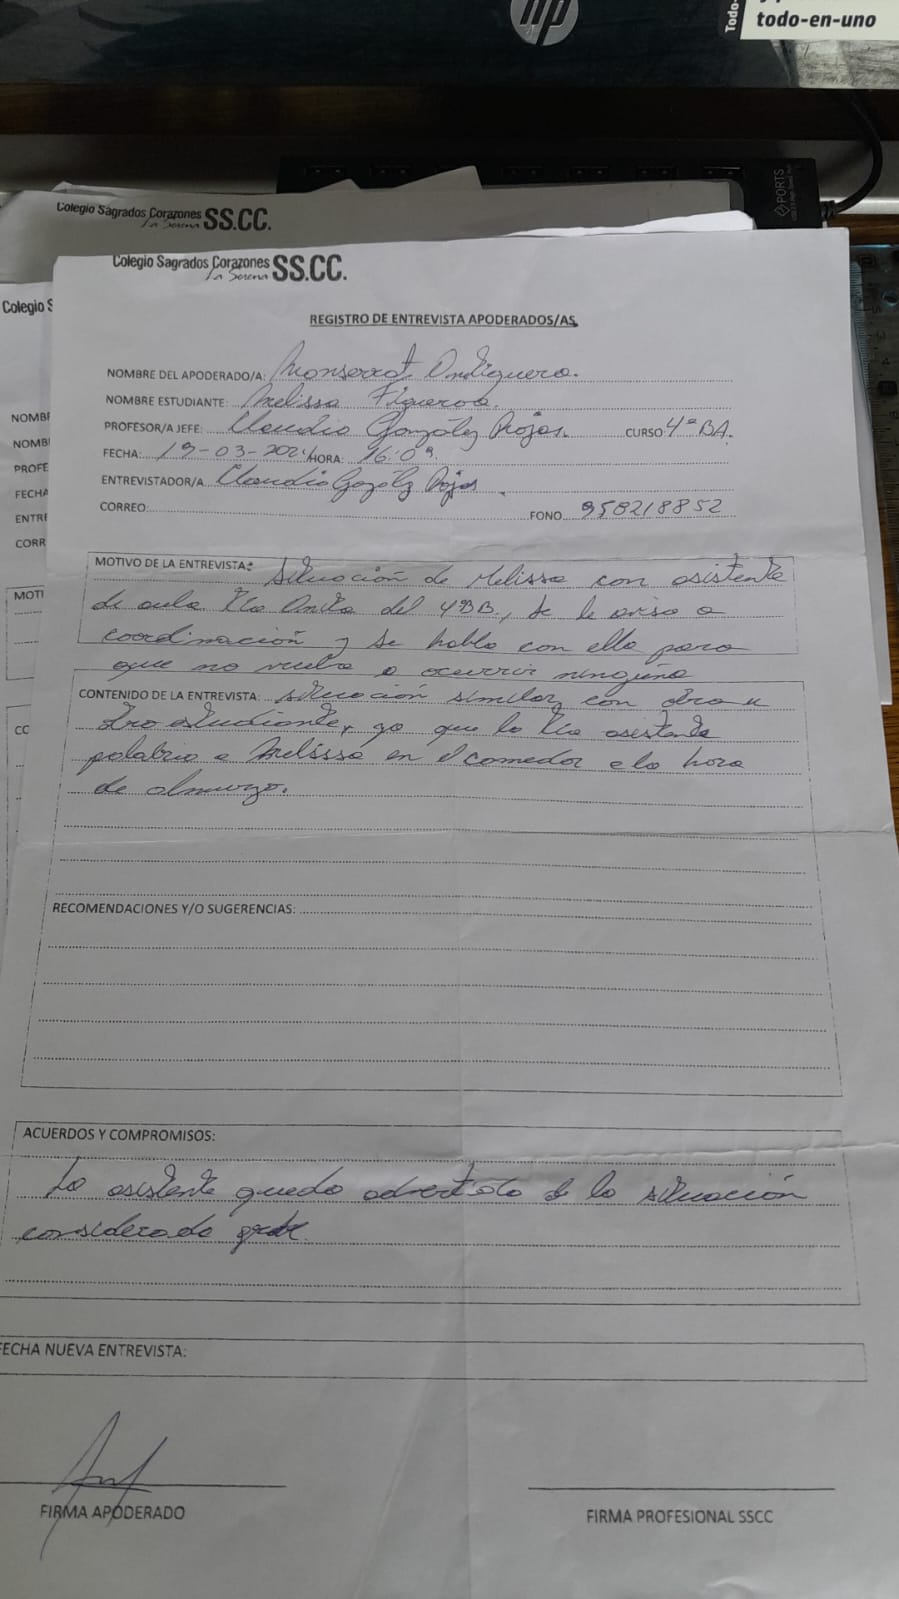 Todo-
todo-en-uno
PORTS
Colegio Sagrados Corazones SS.CC.
La Serena
Colegio Sagrados Corazones SS.CC.
La Serena
Colegio S
REGISTRO DE ENTREVISTA APODERADOS/AS
NOMBRE DEL APODERADO/A: Monserrat
NOMBRE ESTUDIANTE: Melissa Figueroa.
PROFESOR/A JEFE: Claudio González Rojas. CURSO 4°BA.
FECHA: 19-03-202 HORA: 16:0
ENTREVISTADOR/A Claudio Rojas
CORREO: FONO 958218852
MOTIVO DE LA ENTREVISTA: Situación de Melissa con asistente
de aula Tía Anita del 4°BB., se le aviso a
coordinación y se hablo con ella para
que no vuelva a ocurrir ninguna
CONTENIDO DE LA ENTREVISTA: situación similar, con otra u
otro estudiante, ya que la tía asistente
a Melissa en el comedor a la hora
de almuerzo.
RECOMENDACIONES Y/O SUGERENCIAS:
ACUERDOS Y COMPROMISOS:
La asistente quedo de la situación
considerada
FECHA NUEVA ENTREVISTA:
FIRMA APODERADO
FIRMA PROFESIONAL SSCC
NOMB
NOMB
PROFE
FECHA
ENTRE
CORR
MOTI
CO